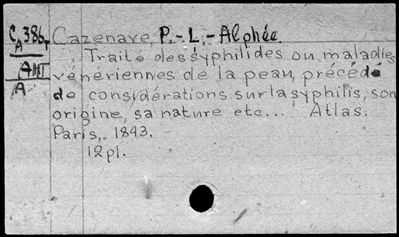 C 386, Cazenave, P.-L.-Alphée
A
AMT
A
Traité des syphilides ou maladies
vénériennes de la peau, précédé
de considérations sur la syphilis, son
origine, sa nature etc... Atlas.
Paris, 1843.
12 pl.